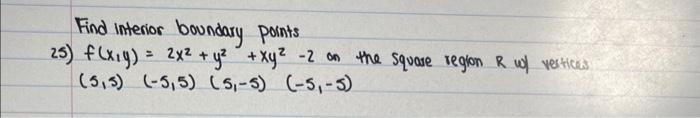 Find interior boundary points
25) f(x,y) = 2x² + y² + xy² - 2 on the square region R w/ vertices
(5,5) (-5,5) (5,-5) (-5,-5)